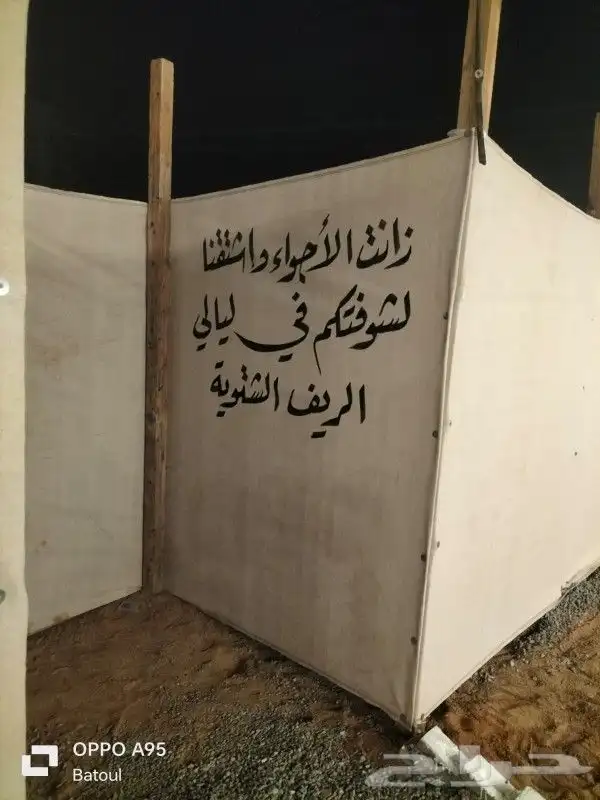 زانت الأجواء واشتقنا
لشوفتكم في ليالي
الريف الشتوية
OPPO A95
Batoul
حراج